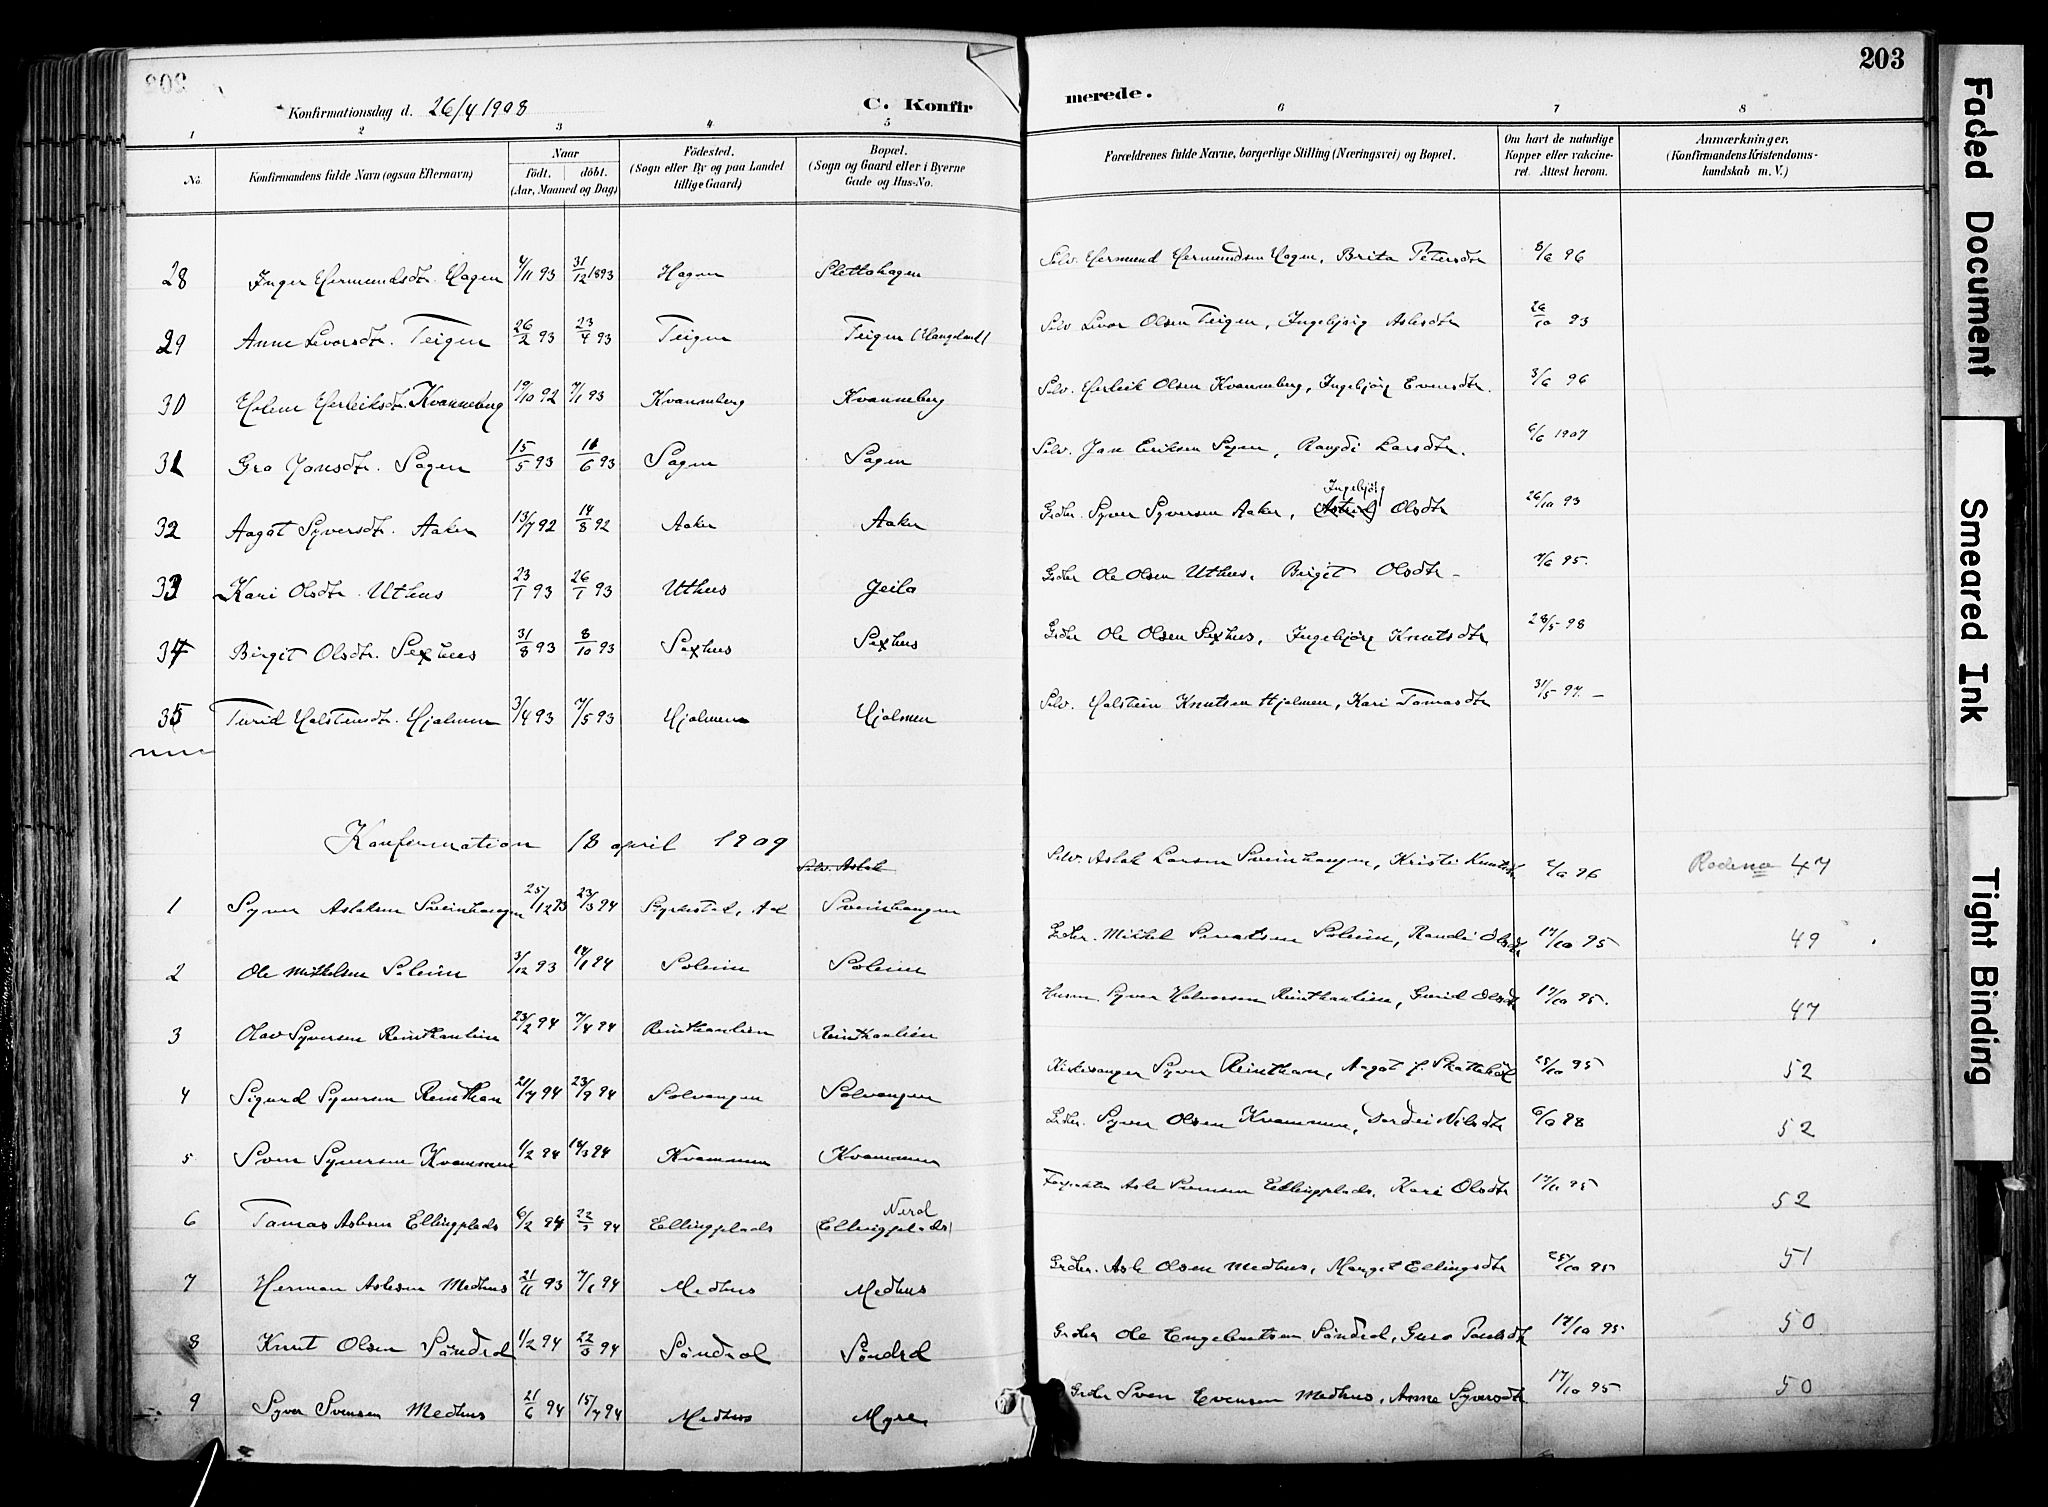 203
Konfirmationsdag d. 26/4 1908 C. Konfirmerede.
1 2 3 4 5 6 7 8
No. Konfirmandens fulde Navn (ogsaa Efternavn) Naar født. døbt. (Aar, Maaned og Dag) Fødested. (Sogn eller By og paa Landet tillige Gaard) Bopæl. (Sogn og Gaard eller i Byerne Gade og Hus-No. Forældrenes fulde Navne, borgerlige Stilling (Næringsvei) og Bopæl. Om havt de naturlige Kopper eller vakcineret. Attest herom. Anmærkninger. (Konfirmandens Kristendomskundskab m. V.)
28 Inger Hermundsdtr. Hagen 4/11 93 31/12 1893 Hagen Slettohagen Selv. Hermund Hermundsen Hagen, Brita Petersdtr 8/6 96
29 Anne Livorsdtr. Teigen 26/2 93 23/4 93 Teigen Teigen (Haugeland) Selv Livor Olsen Teigen, Ingebjörg Aslesdtr 26/10 93
30 Helene Herleiksdtr. Kvanneberg 19/10 92 7/1 93 Kvanneberg Kvanneberg Selv. Herleik Olsen Kvanneberg, Ingebjörg Evensdtr. 3/6 96
31 Gro Jonsdtr. Sagen 15/5 93 11/6 93 Sagen Sagen Selv. Jon Eriksen Sagen, Rangdi Larsdtr. 6/6 1907
32 Aagot Syversdtr. Aaker 13/7 92 14/8 92 Aaker Aaker Grdbr. Syver Syversen Aaker, Ingebjörg Olsdtr 26/10 93
33 Kari Olsdtr Uthus 23/1 93 26/1 93 Uthus Geilo Grdbr Ole Olsen Uthus, Birgit Olsdtr - 7/6 95.
34 Birgit Olsdtr. Sexhus 31/8 93 8/10 93 Sexhus Sexhus Grdbr Ole Olsen Sexhus, Ingebjörg Knutsdtr 28/5 98
35 Turid Holsteinsdtr. Hjalmen 3/4 93 7/5 93 Hjalmen Hjalmen Selv. Holstein Knutsen Hjalmen, Kari Tomasdtr 31/5 97. -
Konfirmation 18 april 1909
Selv. Aslak
1 Syver Aslaksen Sveinhaugen 25/12 93 23/3 94 Sveinhaugen Selv. Aslak Larsen Sveinhaugen, Kristi Knutsdt. 96 47
2 Ole Mikkelsen Soleim 3/12 93 14/1 94 Soleim Soleim Grdbr. Mikkel Soleim, Randi Olsdtr 17/10 95 49
3 Olav Syversen Reintkanlien 23/2 94 7/4 94 Reintkanlien Reintkanlien Husm Syver Halvorsen Reintkanlien, Gunid Olsdt 17/10 95. 47
4 Sigurd Syversen Reintkan 21/7 94 23/9 94 Solvangen Solvangen Kirkesanger Syver Reintkan, Aagot f. Skattebøl 25/10 95 52
5 Sven Syversen Kvammen 1/2 94 18/3 94 Kvammen Kvammen Grdbr. Syver Olsen Kvammen, Dordei Nilsdtr 6/6 98 52
6 Tamas Aslesen Ellingplads 6/2 94 22/3 94 Ellingplads Nerol (Ellingplads) Forpakter Asle Svensen Ellingplads, Kari Olsdtr 17/10 95 52
7 Herman Aslesen Medhus 21/11 93 7/1 94 Medhus Medhus Grdbr. Asle Olsen Medhus, Margit Ellingsdtr 25/10 95 51
8 Knut Olsen Söndrol 1/2 94 22/3 94 Söndrol Söndrol Grdbr Ole Engebretsen Söndrol, Guro Paulsdt 17/10 95 50
9 Syver Svensen Medhus 21/6 94 15/7 94 Medhus Myre Grdbr Sven Evensen Medhus, Anne Syversdtr 17/10 95 50
Faded Document
Smeared Ink
Tight Binding